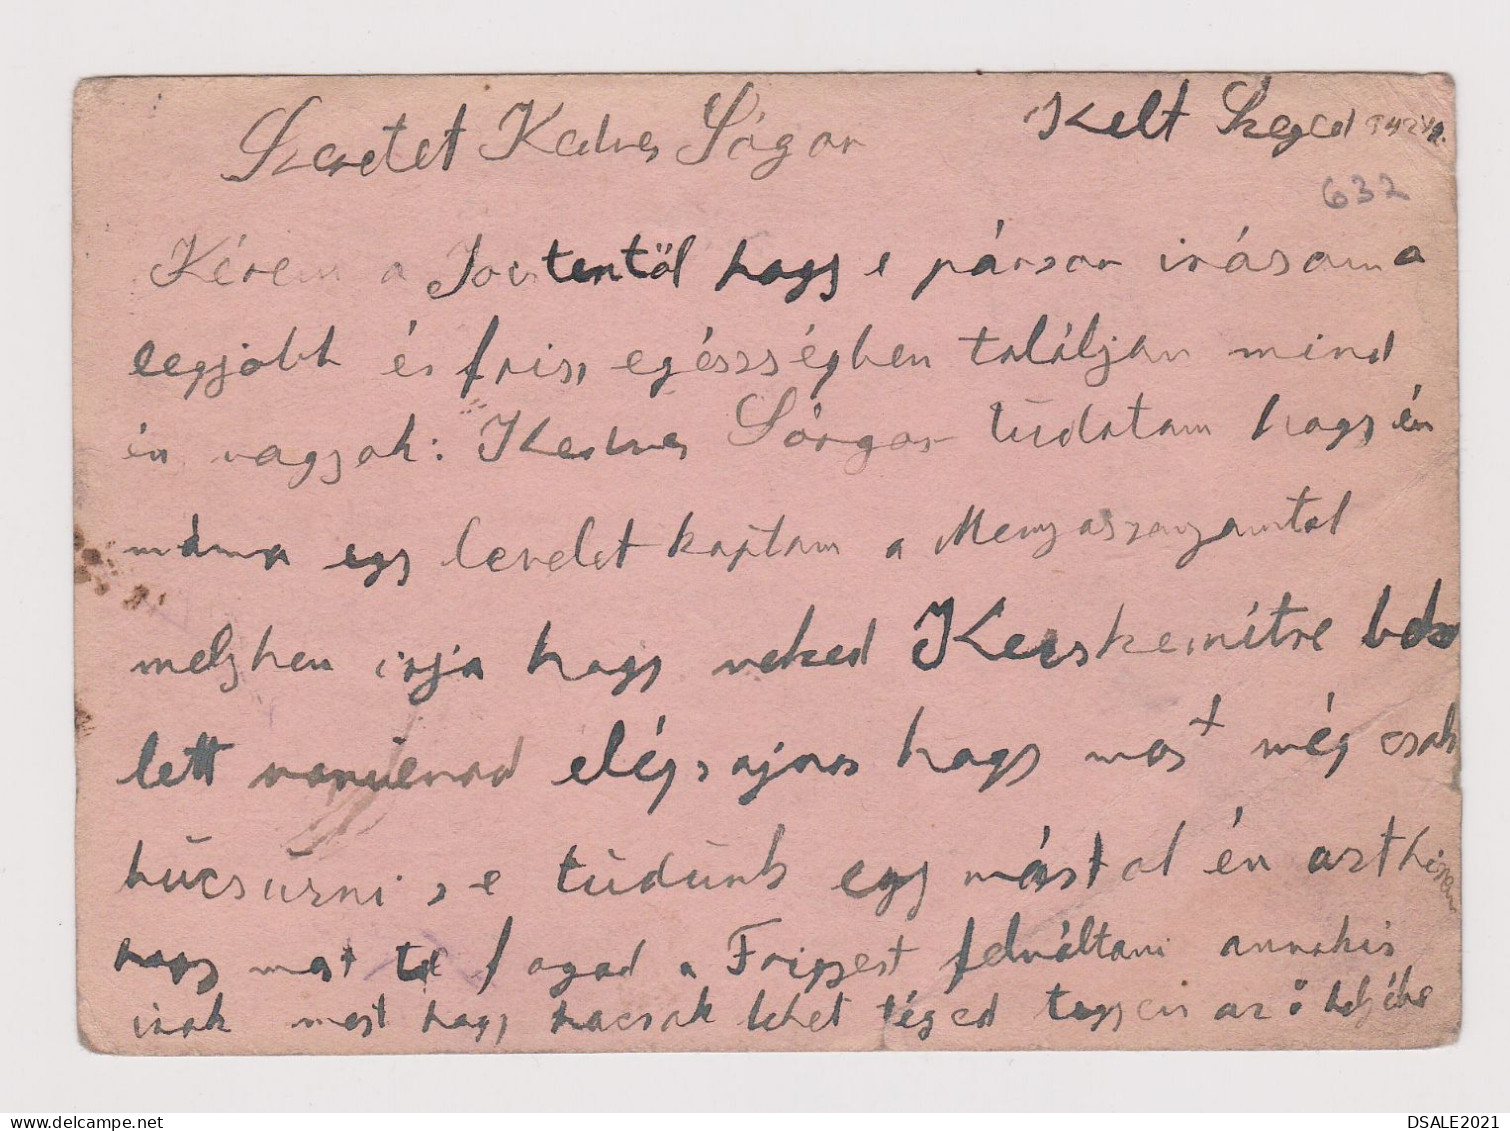 Szeretet Kedves Sógor Kelt Szeged
632
Kérem a Jóistentöl hogy e pársor irásom a
legjobb és friss egészségben találjon mind
én vagyok: Kedves Sógor túdatom hogy én
máma egy levelet kaptam a Menyaszonyamtol
melyben irja hogy neked Kecskemétre be
lett elég sajnos hogy most még csak
búcsúzni se túdúnk egy mástol én azt hiszem
hogy most te fogod a Frigyest felváltani annakis
irok most hogy hacsak lehet téged tegyen az ö helyébe
DSALE2021